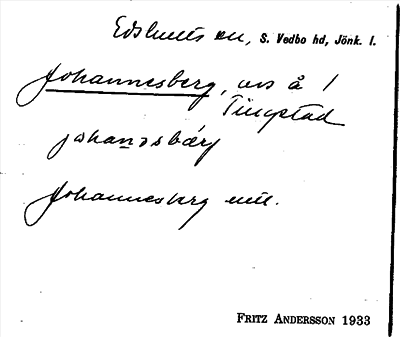 Edshults sn, S. Vedbo hd, Jönk. l.
Johannesberg, avs å 1
Tingstad
johanəsbærj
Johannesberg mtl.
FRITZ ANDERSSON 1933